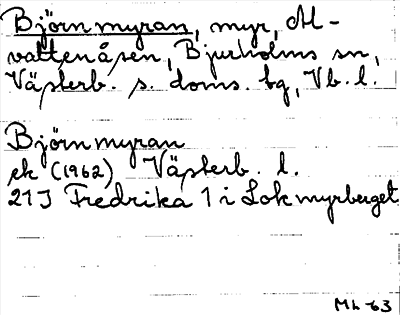 Björnmyran, myr, Al-
vattenåsen, Bjurholms sn,
Västerb. s. doms. bg, Vb. l.
Björnmyran
ek (1962) Västerb. l.
21J Fredrika 1 i Lokmyrberget
Mh-63